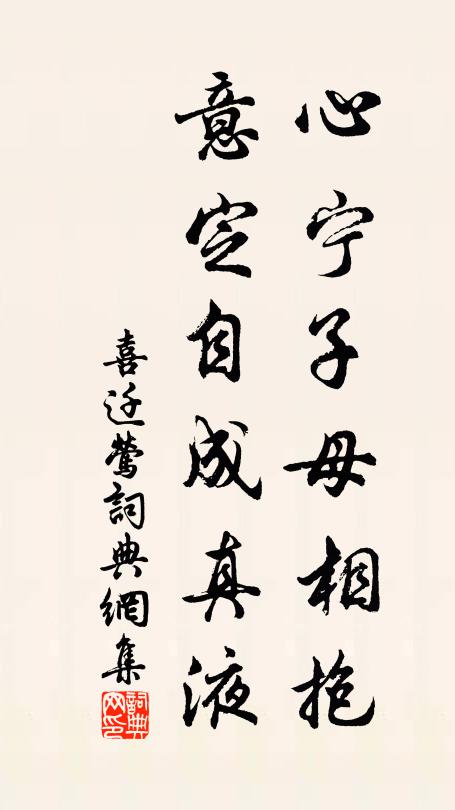 心宁子母相抱
意定自成真液
喜迁莺詞典網集
詞典网印